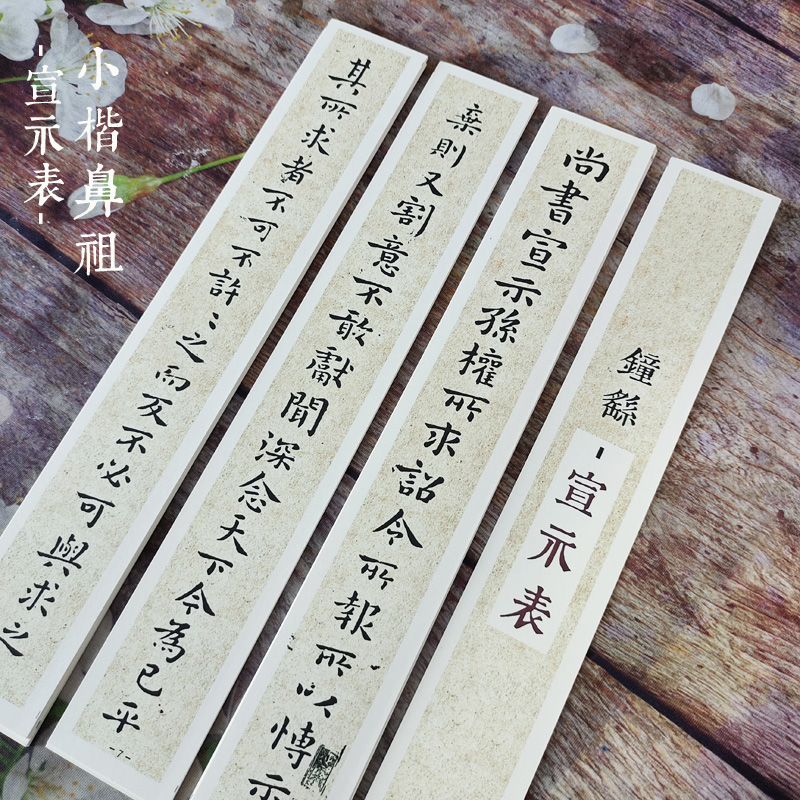 小楷鼻祖
-宣示表-
鐘繇
-宣示表
尚書宣示孫權所求詔令所報所以愽示
棄則又割意不敢獻聞深念天下今為已平
-7-
其所求者不可不許〻之而反不必可與求之